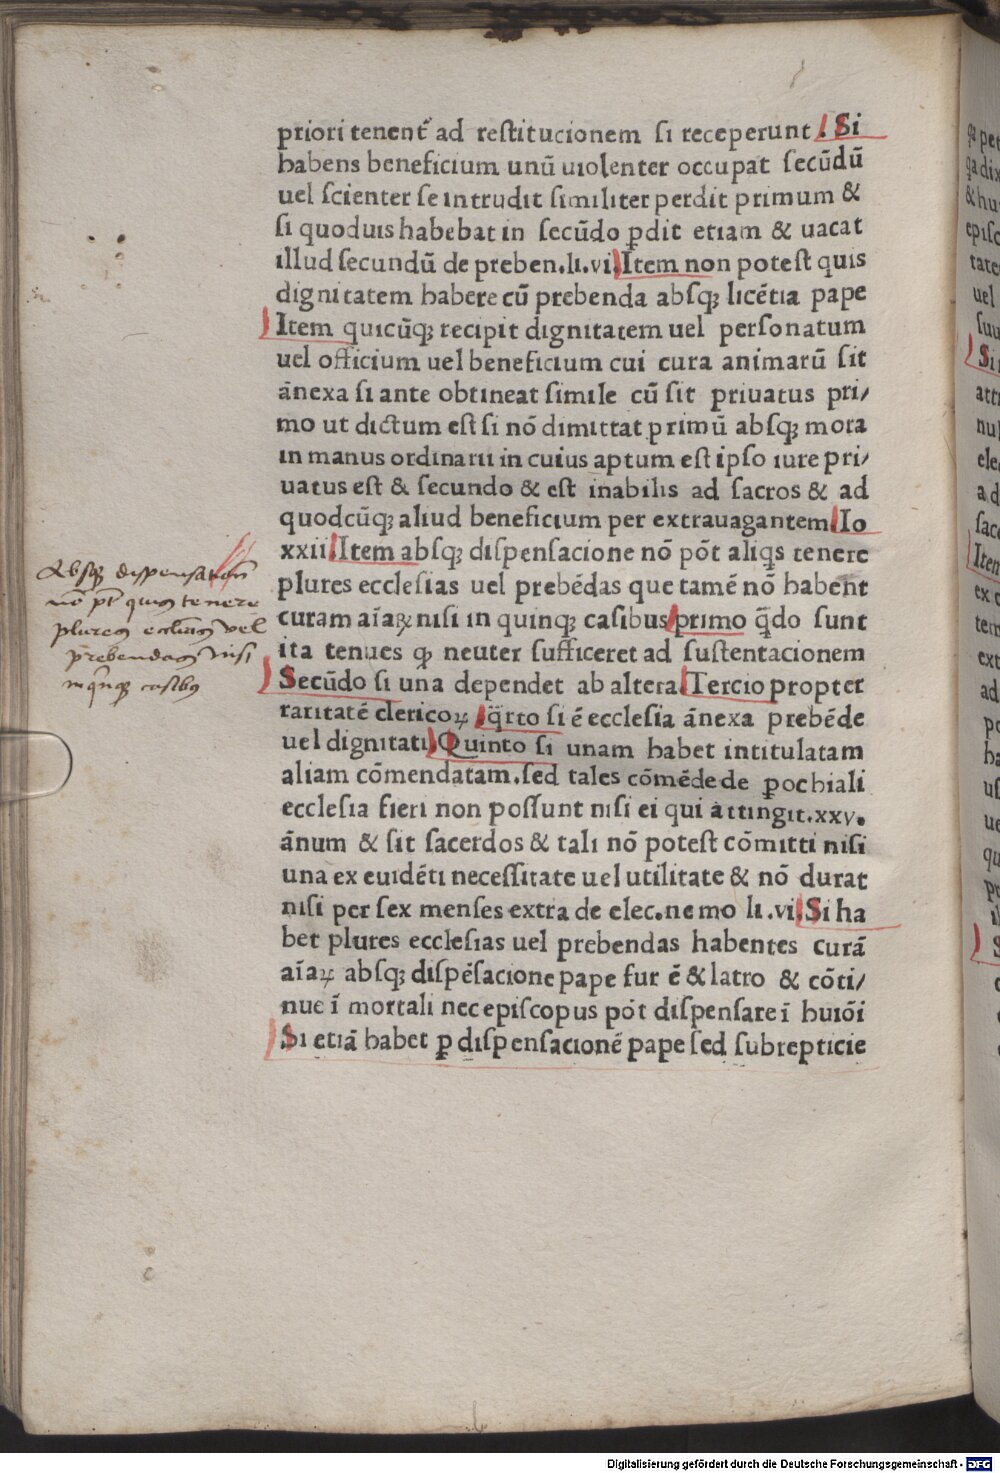 priori tenent᷑ ad reſtitucionem ſi receperunt . Si
habens beneficium unū uiolenter occupat ſecūdū
uel ſcienter ſe intrudit ſimiliter perdit primum &
ſi quoduis habebat in ſecūdo ꝑdit etiam & uacat
illud ſecundū de preben.li.vi. Item non poteſt quis
dignitatem habere cū prebenda abſqꝫ licētia pape
Item quicūqꝫ recipit dignitatem uel perſonatum
uel officium uel beneficium cui cura animarū ſit
ānexa ſi ante obtineat ſimile cū ſit priuatus pri/
mo ut dictum eſt ſi nō dimittat primū abſqꝫ mora
in manus ordinarii in cuius aptum eſt ipſo iure pri/
uatus eſt & ſecundo & eſt inabilis ad ſacros & ad
quodcūqꝫ aliud beneficium per extrauagantem Io
xxii. Item abſqꝫ diſpenſacione nō pōt aliqs tenere
plures eccleſias uel prebēdas que tamē nō habent
curam aīaꝝ niſi in quinqꝫ caſibus primo q̄do ſunt
ita tenues ꝙ neuter ſufficeret ad ſuſtentacionem
Secūdo ſi una dependet ab altera Tercio propter
raritatē clericoꝝ q̈rto ſi ē eccleſia ānexa prebēde
uel dignitati Quinto ſi unam habet intitulatam
aliam cōmendatam.ſed tales cōmēde de ꝑochiali
eccleſia fieri non poſſunt niſi ei qui attingit.xxv.
ānum & ſit ſacerdos & tali nō poteſt cōmitti niſi
una ex euidēti neceſſitate uel utilitate & nō durat
niſi per ſex menſes extra de elec.nemo li.vi. Si ha
bet plures eccleſias uel prebendas habentes curā
aīaꝝ abſqꝫ diſpēſacione pape fur ē & latro & cōti/
nue ī mortali nec epiſcopus pōt diſpenſare ī huiōi
Si etiā habet ꝑ diſpenſacionē pape ſed ſubrepticie
Abſqꝫ diſpenſation̄
nō pt̄ quis tenere
plures eccl̄ias vel
p̄rebendas niſi
in q̄nqꝫ caſibꝫ
Digitalisierung gefördert durch die Deutsche Forschungsgemeinschaft - DFG